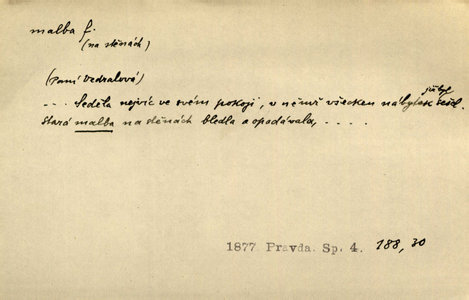 malba f.
(na stěnách)
(Paní Vedralová)
... Seděla nejvíc ve svém pokoji, v němž všecken nábytek
stará malba na stěnách bledla a opadávala, ....
1877. Pravda. Sp. 4. 188, 30